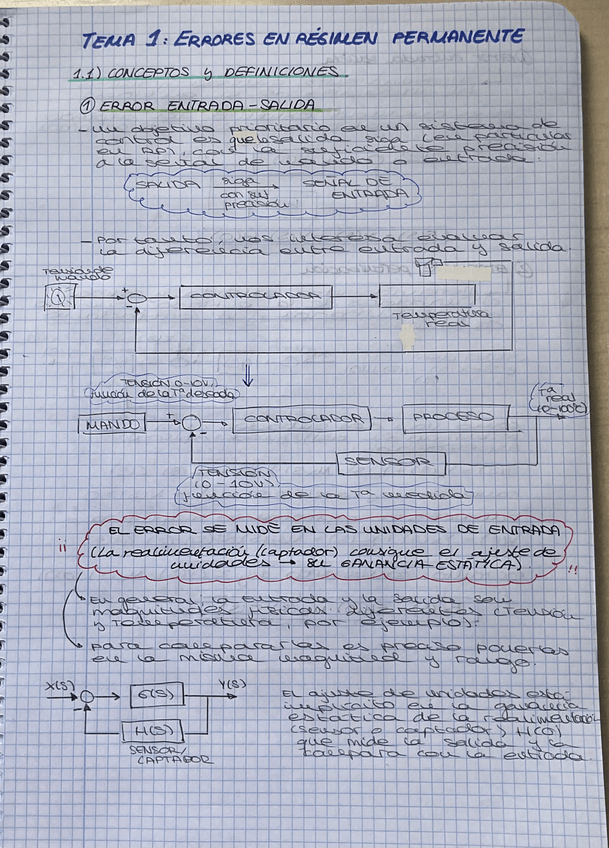 TEMA 1: ERRORES EN RÉGIMEN PERMANENTE
1.1) CONCEPTOS y DEFINICIONES
① ERROR ENTRADA-SALIDA
- un objetivo prioritario en un sistema de
control es que la salida siga (en particular
en RP), con la suficiente precisión
a la señal de mando o entrada.
SALIDA siga con suf precisión → SEÑAL DE ENTRADA
- Por tanto, nos interesa evaluar
la diferencia entre entrada y salida.
Tensión de mando
+
-
CONTROLADOR
Temperatura real
TENSIÓN 0-10V.
función de la Tª deseada
Tª real (0-100ºC)
MANDO
+
-
CONTROLADOR
PROCESO
SENSOR
TENSIÓN
(0-10V)
función de la Tª medida
¡¡ EL ERROR SE MIDE EN LAS UNIDADES DE ENTRADA
(La realimentación (captador) consigue el ajuste de
unidades → su GANANCIA ESTÁTICA) !!
En general, la entrada y la salida son
magnitudes físicas diferentes (Tensión
y Temperatura, por ejemplo).
para compararlas es preciso ponerlas
en la misma magnitud y rango.
X(S)
-
G(S)
Y(S)
H(S)
SENSOR/
CAPTADOR
El ajuste de unidades está
implícito en la ganancia
estática de la realimentación
(sensor o captador) H(0)
que mide la salida y la
compara con la entrada.